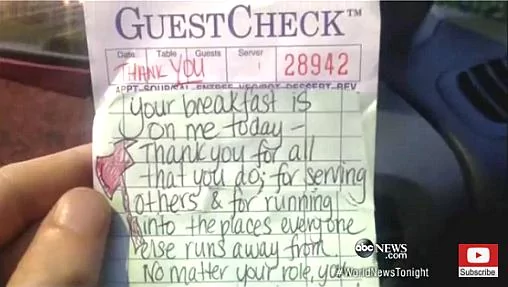 GUESTCHECK™
Date Table Guests Server
THANK YOU 28942
APPT-SOUP/SAL-ENTREE-VEG/POT-DESSERT-BEV
your breakfast is
on me today –
Thank you for all
that you do; for serving
others & for running
into the places everyone
else runs away from.
No matter your role, you
abc NEWS
.com
#WorldNewsTonight
Subscribe